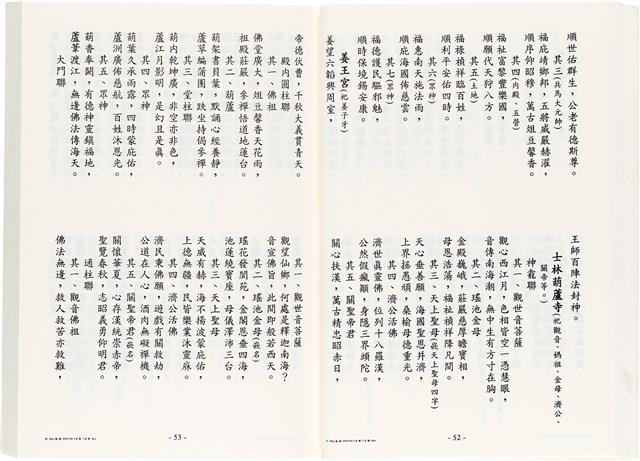 順世佑群生，公老有德斯尊。
其三(兵馬大元帥)
福庇靖鄉邦，五將威嚴赫濯，
順序仰昭穆，萬古俎豆馨香。
其四(內殿、五營)
福祉富黎豐樂國，
順願代天狩八方。
其五(土地)
福祿禎祥臨百姓，
順利平安佑四時。
其六(眾神)
福惠南天施法雨，
順庇海國佈慈雲。
其七(眾神)
福德護民驅邪魅，
順時保境錫安康。
姜王宮(祀姜子牙)
姜望六韜興周室，
王師百陣法封神。
士林葫蘆寺(祀觀音、媽祖、金母、濟公、
關帝等。)
神龕聯
其一、觀世音菩薩
觀心西江月，色相皆空一憑慧眼，
音傳南海潮，無中生有方寸在胸。
其二、瑤池金母
金殿巍峨，莊嚴慈厚瞻寶相，
母恩浩蕩，福祉禎祥降凡間。
其三、天上聖母(嵌天上聖母四字)
天心垂善願，海國聖恩并濟，
上界挺頑，桑榆母德重光。
其四、濟公活佛
濟世真靈佛，位列十八羅漢，
公然假瘋顛，身隱三界頭陀。
其五、關聖帝君
關心扶漢，萬古精忠昭赤日，
- 52 -
帝德伏曹，千秋大義貫青天。
殿內圓柱聯
其一、佛祖
佛堂廣大，俎豆馨香天花雨，
祖殿莊嚴，參禪悟道地蓮台。
其二、葫蘆
葫架書貝葉，默誦心經養靜，
蘆草編蒲團，趺坐持偈參禪。
其三、堂柱聯
葫內乾坤廣，非空亦非色，
蘆江月影明，是幻且是真。
其四、眾神
葫葉久承雨露，四時蒙庇佑，
蘆洲廣佈慈航，百姓沐恩光。
其五、眾神
葫香奉，有德神靈鎮福地，
蘆葦渡江，無邊佛法傳海天。
大門聯
其一、觀世音菩薩
觀望仙鄉，何處是釋迦南海？
音宣佛旨，此間即般若西天。
其二、瑤池金母(嵌名)
瑤花發閬苑，金闕恩垂四海，
池蓮繞寶座，母儀澤沛三台。
其三、天上聖母
天威有赫，海不揚波蒙庇佑，
上德無疆，民皆樂業沐靈庥。
其四、濟公活佛
濟民秉佛願，遊戲有關救劫，
公道在人心，酒肉無礙禪機。
其五、關聖帝君(嵌名)
關懷華夏，心存漢統崇赤帝，
聖覽春秋，志昭義勇仰明君。
通柱聯
其一、觀音佛祖
佛法無邊，救人救苦亦救難，
- 53 -